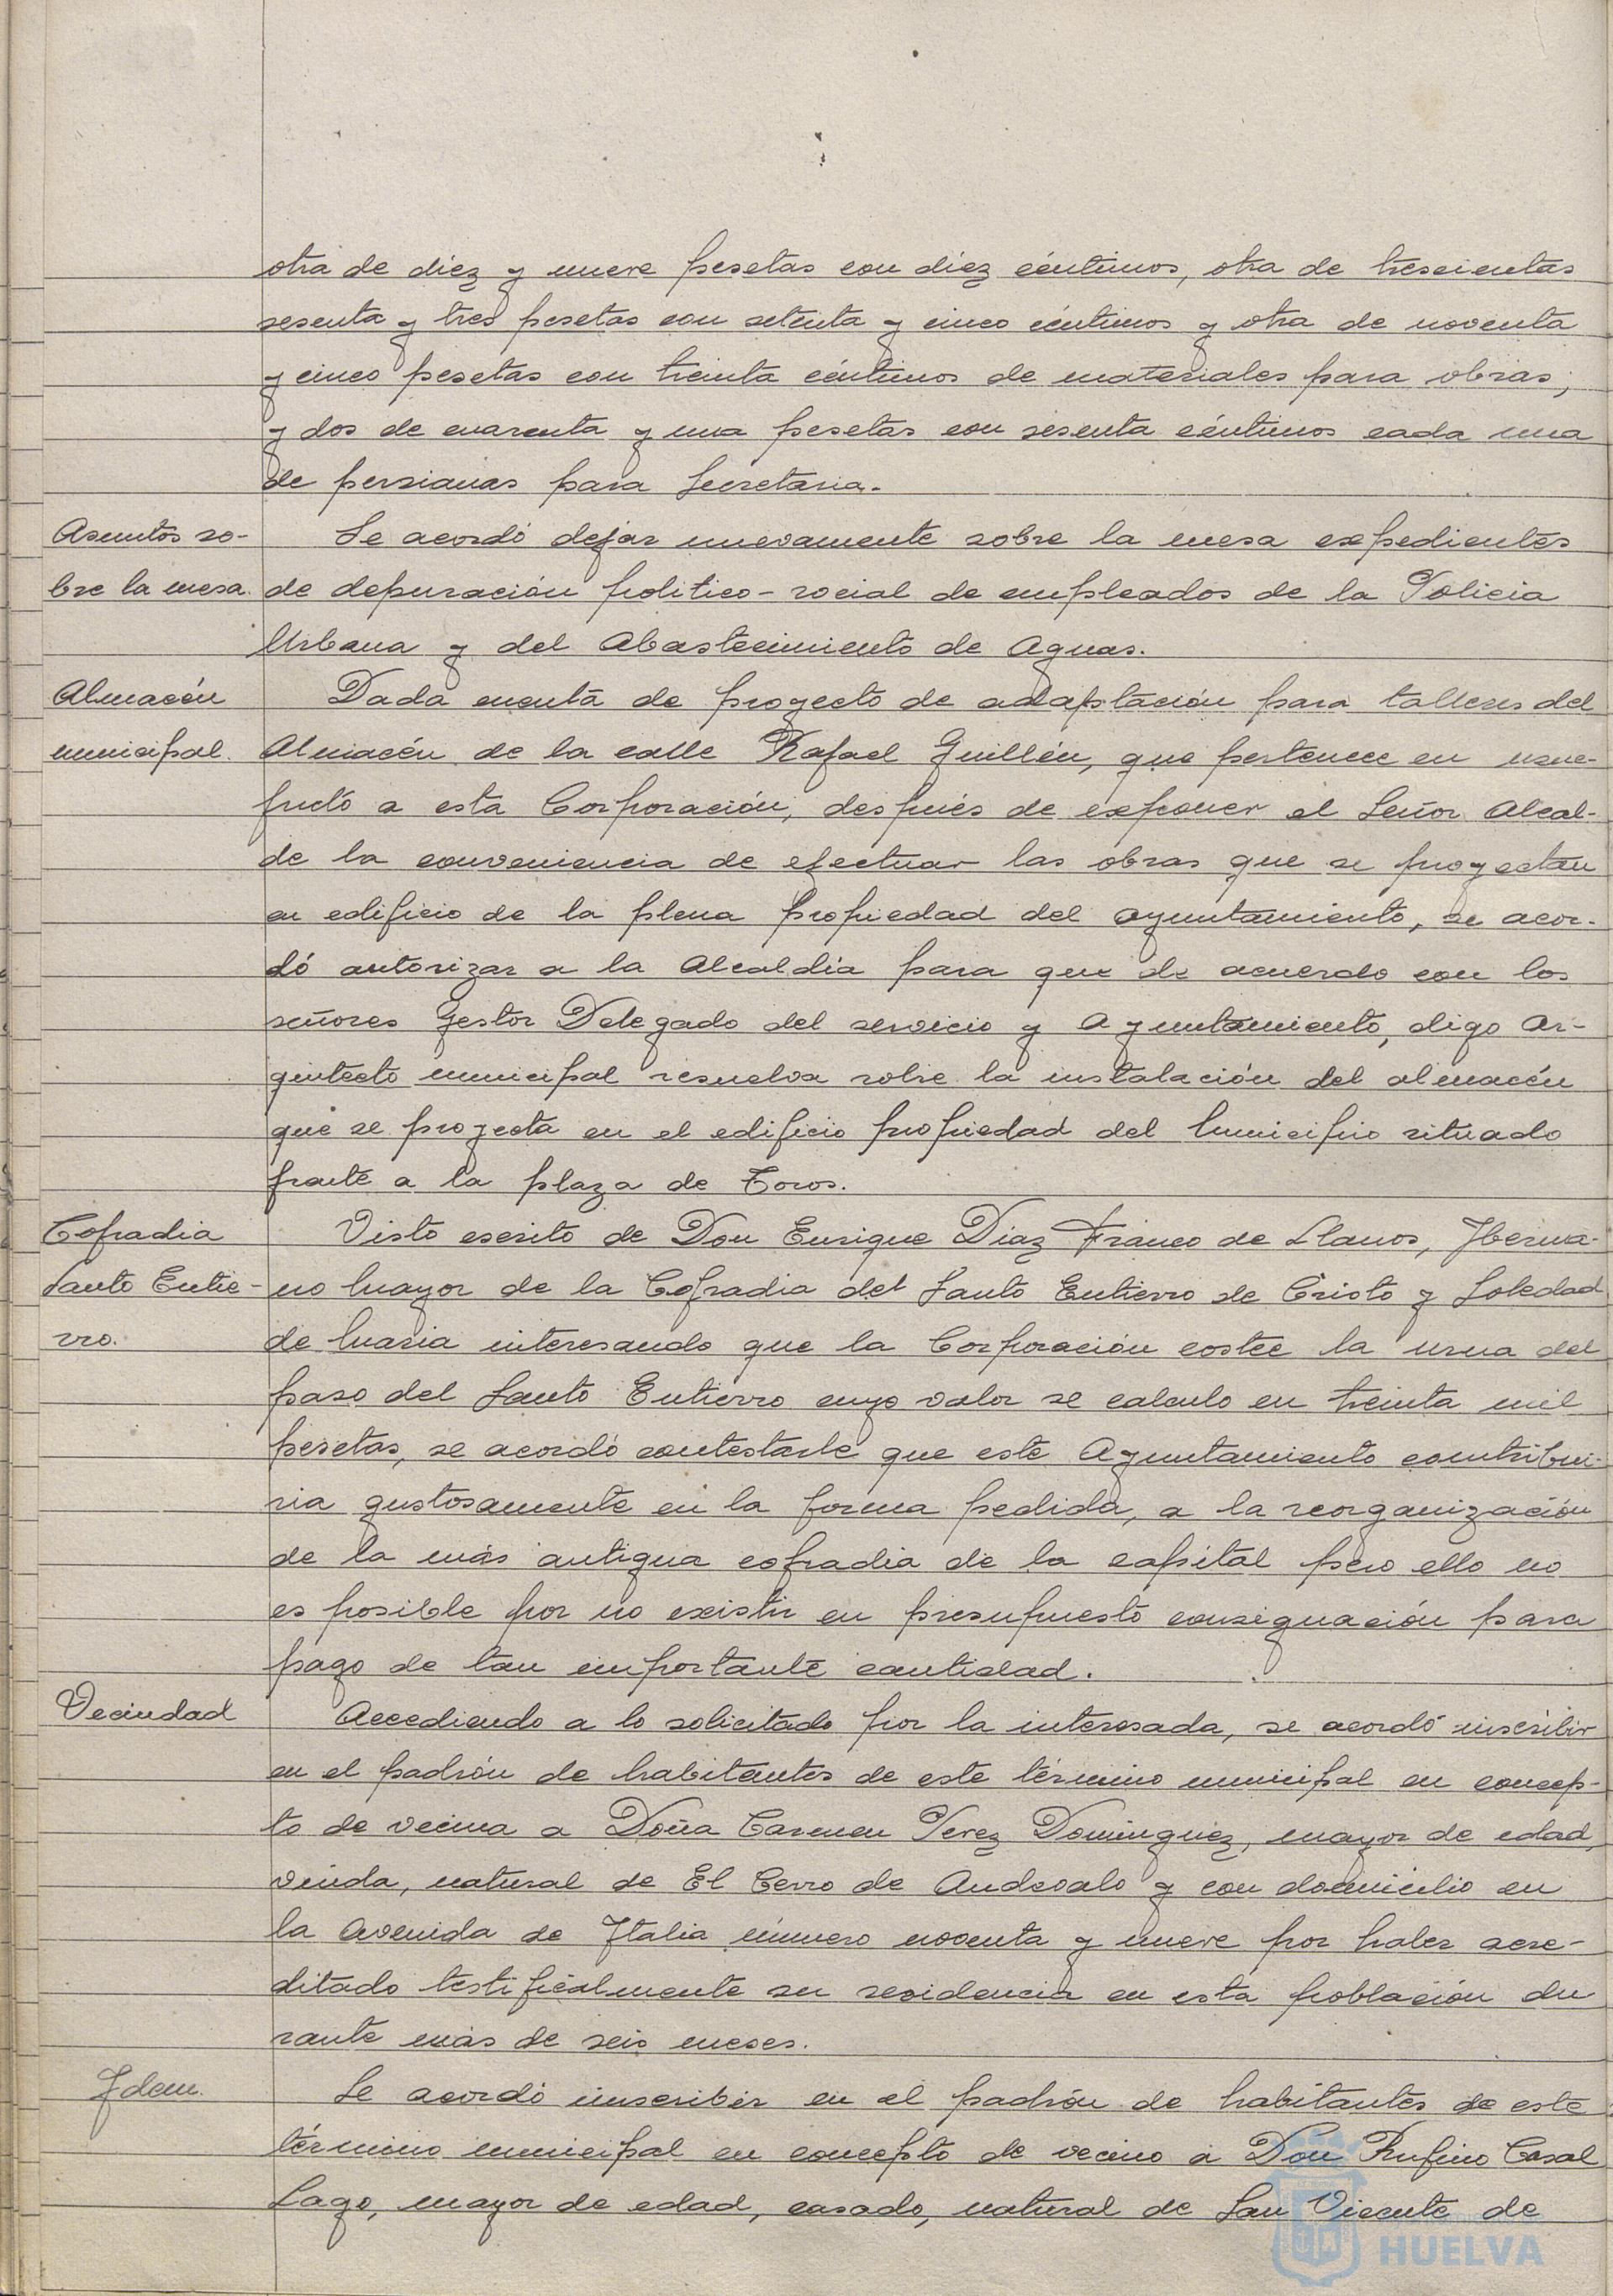 otra de diez y nueve pesetas con diez céntimos, otra de trescientas
sesenta y tres pesetas con setenta y cinco céntimos y otra de noventa
y cinco pesetas con treinta céntimos de materiales para obras;
y dos de cuarenta y una pesetas con sesenta céntimos cada una
de persianas para Secretaria.
Asuntos so-
bre la mesa.
Se acordó dejar nuevamente sobre la mesa expedientes
de depuración politico-social de empleados de la Policia
Urbana y del Abastecimiento de Aguas.
Almacén
municipal.
Dada cuenta de proyecto de adaptación para talleres del
Almacén de la calle Rafael Guillén, que pertenece en usu-
fructo a esta Corporación, después de exponer el Señor Alcal-
de la conveniencia de efectuar las obras que se proyectan
en edificio de la plena propiedad del Ayuntamiento, se acor-
dó autorizar a la Alcaldia para que de acuerdo con los
señores Gestor Delegado del servicio y Ayuntamiento, digo Ar-
quitecto municipal resuelva sobre la instalación del almacén
que se proyecta en el edificio propiedad del Municipio situado
frente a la plaza de Toros.
Cofradia
Santo Entie-
rro.
Visto escrito de Don Enrique Diaz Franco de Llanos, Herma-
no Mayor de la Cofradia del Santo Entierro de Cristo y Soledad
de Maria interesando que la Corporación costee la urna del
paso del Santo Entierro cuyo valor se calculo en treinta mil
pesetas, se acordó contestarle que este Ayuntamiento contribui-
ria gustosamente en la forma pedida, a la reorganización
de la más antigua cofradia de la capital pero ello no
es posible por no existir en presupuesto consignación para
pago de tan importante cantidad.
Vecindad
Accediendo a lo solicitado por la interesada, se acordó inscribir
en el padrón de habitantes de este término municipal en concep-
to de vecina a Doña Carmen Perez Dominguez, mayor de edad,
viuda, natural de El Cerro de Andevalo y con domicilio en
la Avenida de Italia número noventa y nueve por haber acre-
ditado testificalmente su residencia en esta población du
rante más de seis meses.
Idem.
Se acordó inscribir en el padrón de habitantes de este
término municipal en concepto de vecino a Don Rufino Casal
Lago, mayor de edad, casado, natural de San Vicente de
HUELVA